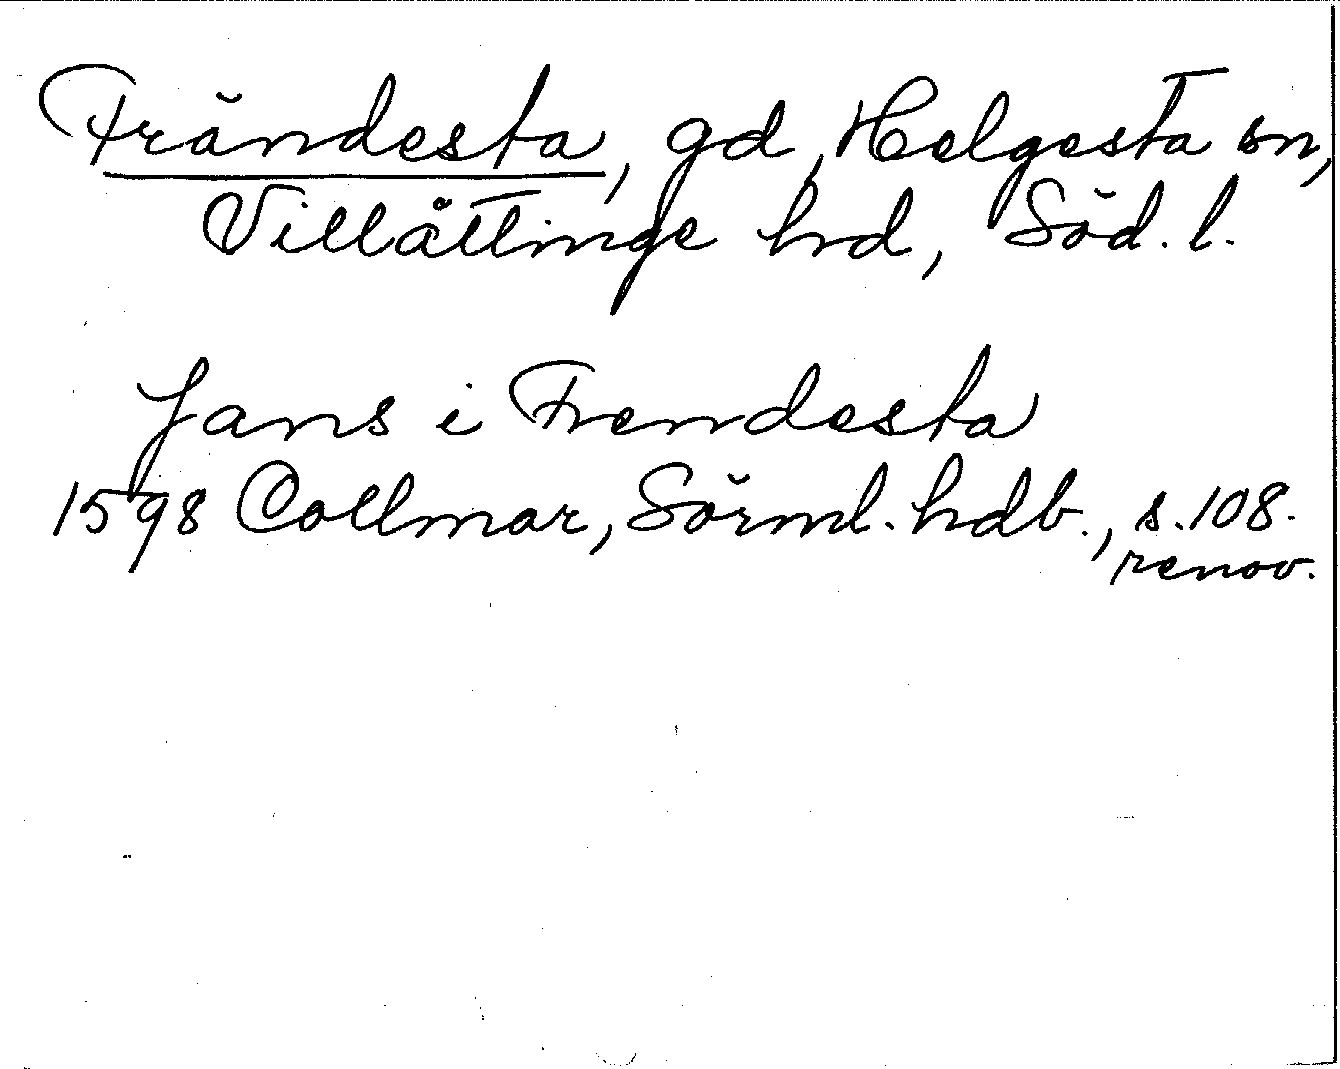 Frändesta, gd, Helgesta sn,
Villåttinge hrd, Söd. l.
Jans i Frendesta
1598 Collmar, Sörml. hdb., s. 108.
renov.